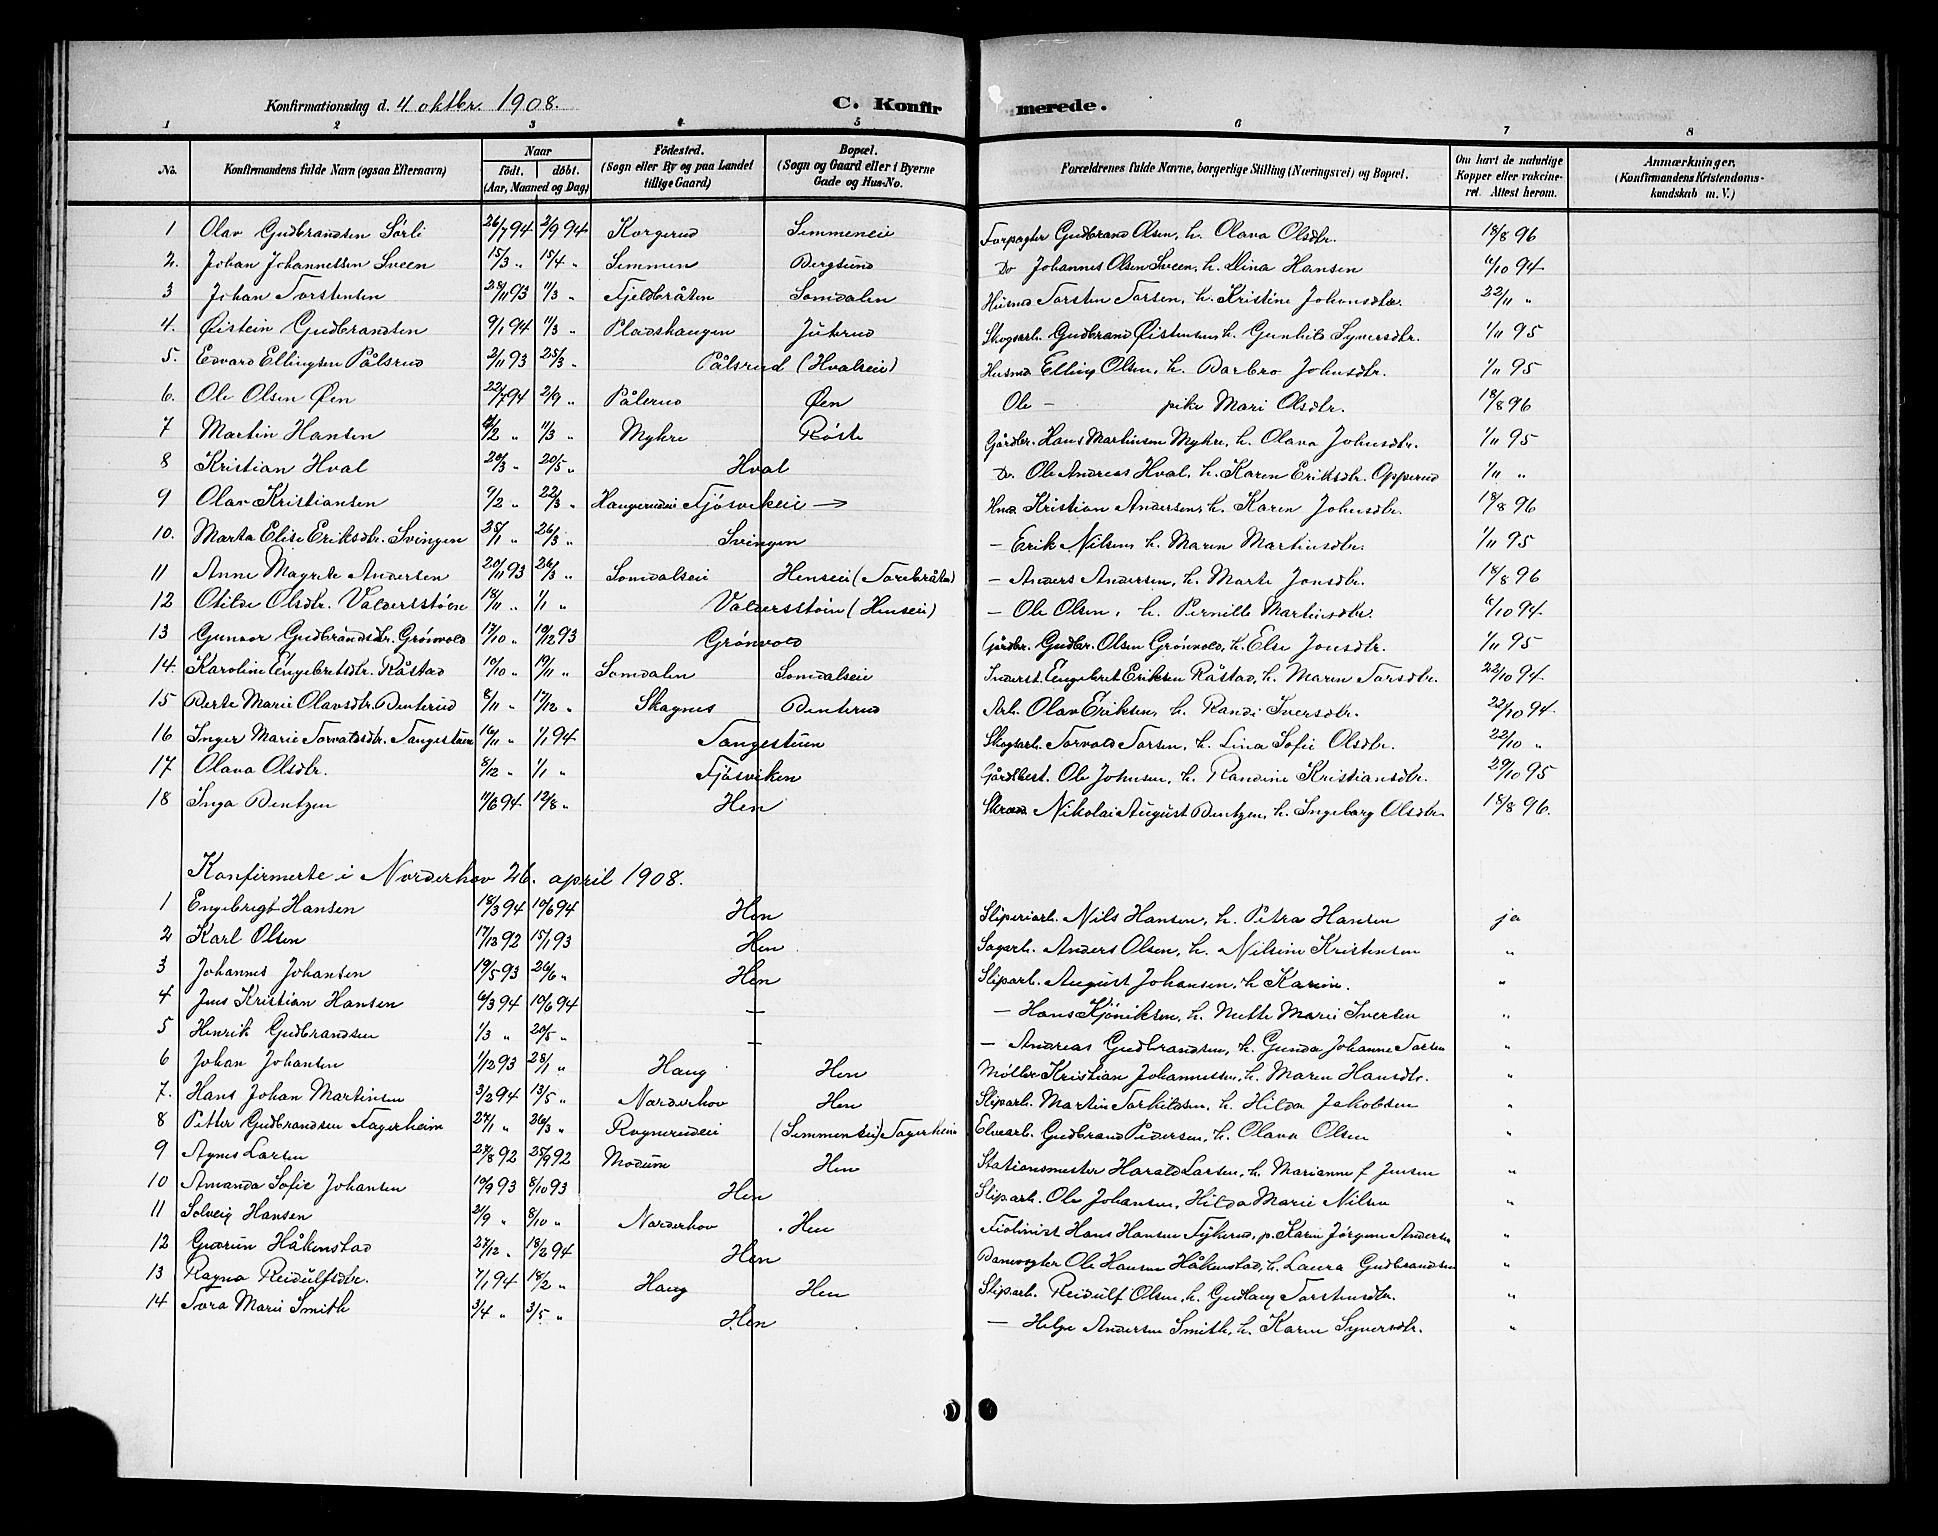 Konfirmationsdag d. 4 oktbr. 1908. C. Konfirmerede.
1 2 3 4 5 6 7 8
No. Konfirmandens fulde Navn (ogsaa Efternavn) Naar født. døbt. (Aar, Maaned og Dag) Fødested. (Sogn eller By og paa Landet tillige Gaard) Bopæl. (Sogn og Gaard eller i Byerne Gade og Hus-No. Forældrenes fulde Navne, borgerlige Stilling (Næringsvei) og Bopæl. Om havt de naturlige Kopper eller vakcineret. Attest herom. Anmærkninger. (Konfirmandens Kristendomskundskab m. V.)
1 Olav Gudbrandsen Sørli 26/7 94 2/9 94 Korgerud Semmeneie Forpagter Gudbrand Olsen, h. Olava Olsdtr. 18/8 96
2. Johan Johannessen Sveen 15/3 „ 15/4 „ Semmen Bergsund Do Johannes Olsen Sveen, h. Elina Hansen 6/10 94
3 Johan Torstensen 28/11 93 11/3 „ Fjeldbråten Somdalen Husmd Torsten Torsen, h. Kristine Johansdtr. 22/11 „
4. Øistein Gudbrandsen 9/1 94 11/3 „ Pladshaugen Juterud Skogsarb. Gudbrand Øistensen, h. Gunhild Syversdtr. 1/11 95
5. Edvard Ellingsen Pålsrud 2/11 93 25/3 „ Pålsrud (Hvalseie) Husmd Elling Olsen, h. Barbro Johnsdtr. 1/11 95
6. Ole Olsen Øen 22/7 94 2/9 „ Pålsrud Øen Ole – pike Mari Olsdtr. 18/8 96
7 Martin Hansen /2 „ 11/3 „ Myhre Røste Gårdbr. Hans Martinsen Myhre, h. Olava Johnsdtr. 1/11 95
8 Kristian Hval 20/3 „ 20/5 „ Hval Do. Ole Andreas Hval, h. Karen Eriksdtr. Opperud 1/11 „
9 Olav Kristiansen 9/2 „ 22/3 „ Haugerudeie Fjøsvikeie → Hmd Kristian Andersen, h. Karen Johnsdtr. 18/8 96
10. Marta Elise Eriksdtr. Svingen 25/1 „ 26/3 „ Svingen – Erik Nilsen, h. Maren Martinsdtr. 1/11 95
11 Anne Magrete Andersen 20/11 93 26/3 „ Somdalseie Henseie (Torebråten) – Anders Andersen, h. Marte Jonsdtr. 18/8 96
12 Otilde Olsdtr. Valdersstøen 18/11 „ 1/1 „ Valdersstøen (Henseie) – Ole Olsen, h. Pernille Martinsdtr. 6/10 94
13 Gunvor Gudbrandsdtr. Grønvold 17/10 „ 10/12 93 Grønvold Gårdbr. Gudbr. Olsen Grønvold, h. Else Jonsdtr. 1/11 95
14. Karoline Engebretsdtr. Råstad 10/10 „ 19/11 „ Somdalen Somdalseie Inderst. Engebret Eriksen Råstad, h. Maren Torsdtr. 22/10 94
15 Berte Marie Olavsdtr. Benterud 8/11 „ 17/12 „ Skagnes Benterud Arb. Olav Eriksen, h. Randi Iversdtr. 22/10 94.
16 Inger Marie Torvaldsdtr. Tangestuen 16/11 „ 1/1 94 Tangestuen Skogsarb. Torvald Torsen, h. Lina Sofie Olsdtr. 22/10 „
17 Olava Olsdtr. 8/12 „ 1/1 „ Fjøsviken Gårdbest. Ole Johnsen, h. Randine Kristiansdtr. 29/10 95
18 Inga Bentzen 11/6 94 12/8 „ Hen Skræd. Nikolai August Bentzen, h. Ingeborg Olsdtr. 18/8 96.
Konfirmerte i Norderhov 26. april 1908.
1 Engebregt Hansen 18/3 94 10/6 94 Hen Sliperiarb. Nils Hansen, h. Petra Hansen ja
2 Karl Olsen 17/12 92 15/1 93 Hen Sagarb. Anders Olsen, h. Nilsine Kristensen „
3 Johannes Johansen 19/5 93 26/6 „ Hen Sliparb. August Johansen, h Karin. „
4 Jens Kristian Hansen 6/3 94 10/6 94 – – Hans Kjøniksen, h. Mette Marie Iversen „
5 Henrik Gudbrandsen 1/3 „ 20/5 „ – – Andreas Gudbrandsen, h. Gunda Johanne Torsen „
6 Johan Johansen 1/12 93 28/1 „ Haug Hen Møller Kristian Johannessen, h. Maren Hansdtr. „
7. Hans Johan Martinsen 3/2 94 13/5 „ Norderhov Hen Sliparb. Martin Torkildsen, h. Hilda Jakobsen „
8 Petter Gudbrandsen Fagerheim 27/1 „ 26/3 „ Rognerudeie (Semmenseie) Fagerheim Elvearb. Gudbrand Pedersen, h. Olava Olsen „
9 Agnes Larsen 27/8 92 25/9 92 Modum Hen Stationsmester Harald Larsen, h. Marianne f. Jensen „
10 Amanda Sofie Johansen 10/9 93 8/10 93 Hen Sliparb. Ole Johansen, Hilda Marie Nilsen „
11 Solveig Hansen 2/9 „ 8/10 „ Norderhov Hen Fiolinist Hans Hansen Fykerud, p. Karin Jørgine Andersen „
12 Gudrun Håkenstad 27/12 „ 18/2 94 Hen Banevogter Ole Hansen Håkenstad, h. Laura Gudbrandsen „
13 Ragna Reidulfsdtr. 7/1 94 18/2 „ Haug Hen Sliparb. Reidulf Olsen, h. Gudlaug Torstensdtr. „
14 Tora Marie Smith 3/4 „ 3/5 „ Hen – Helge Andersen Smith, h. Karen Syversdtr. „